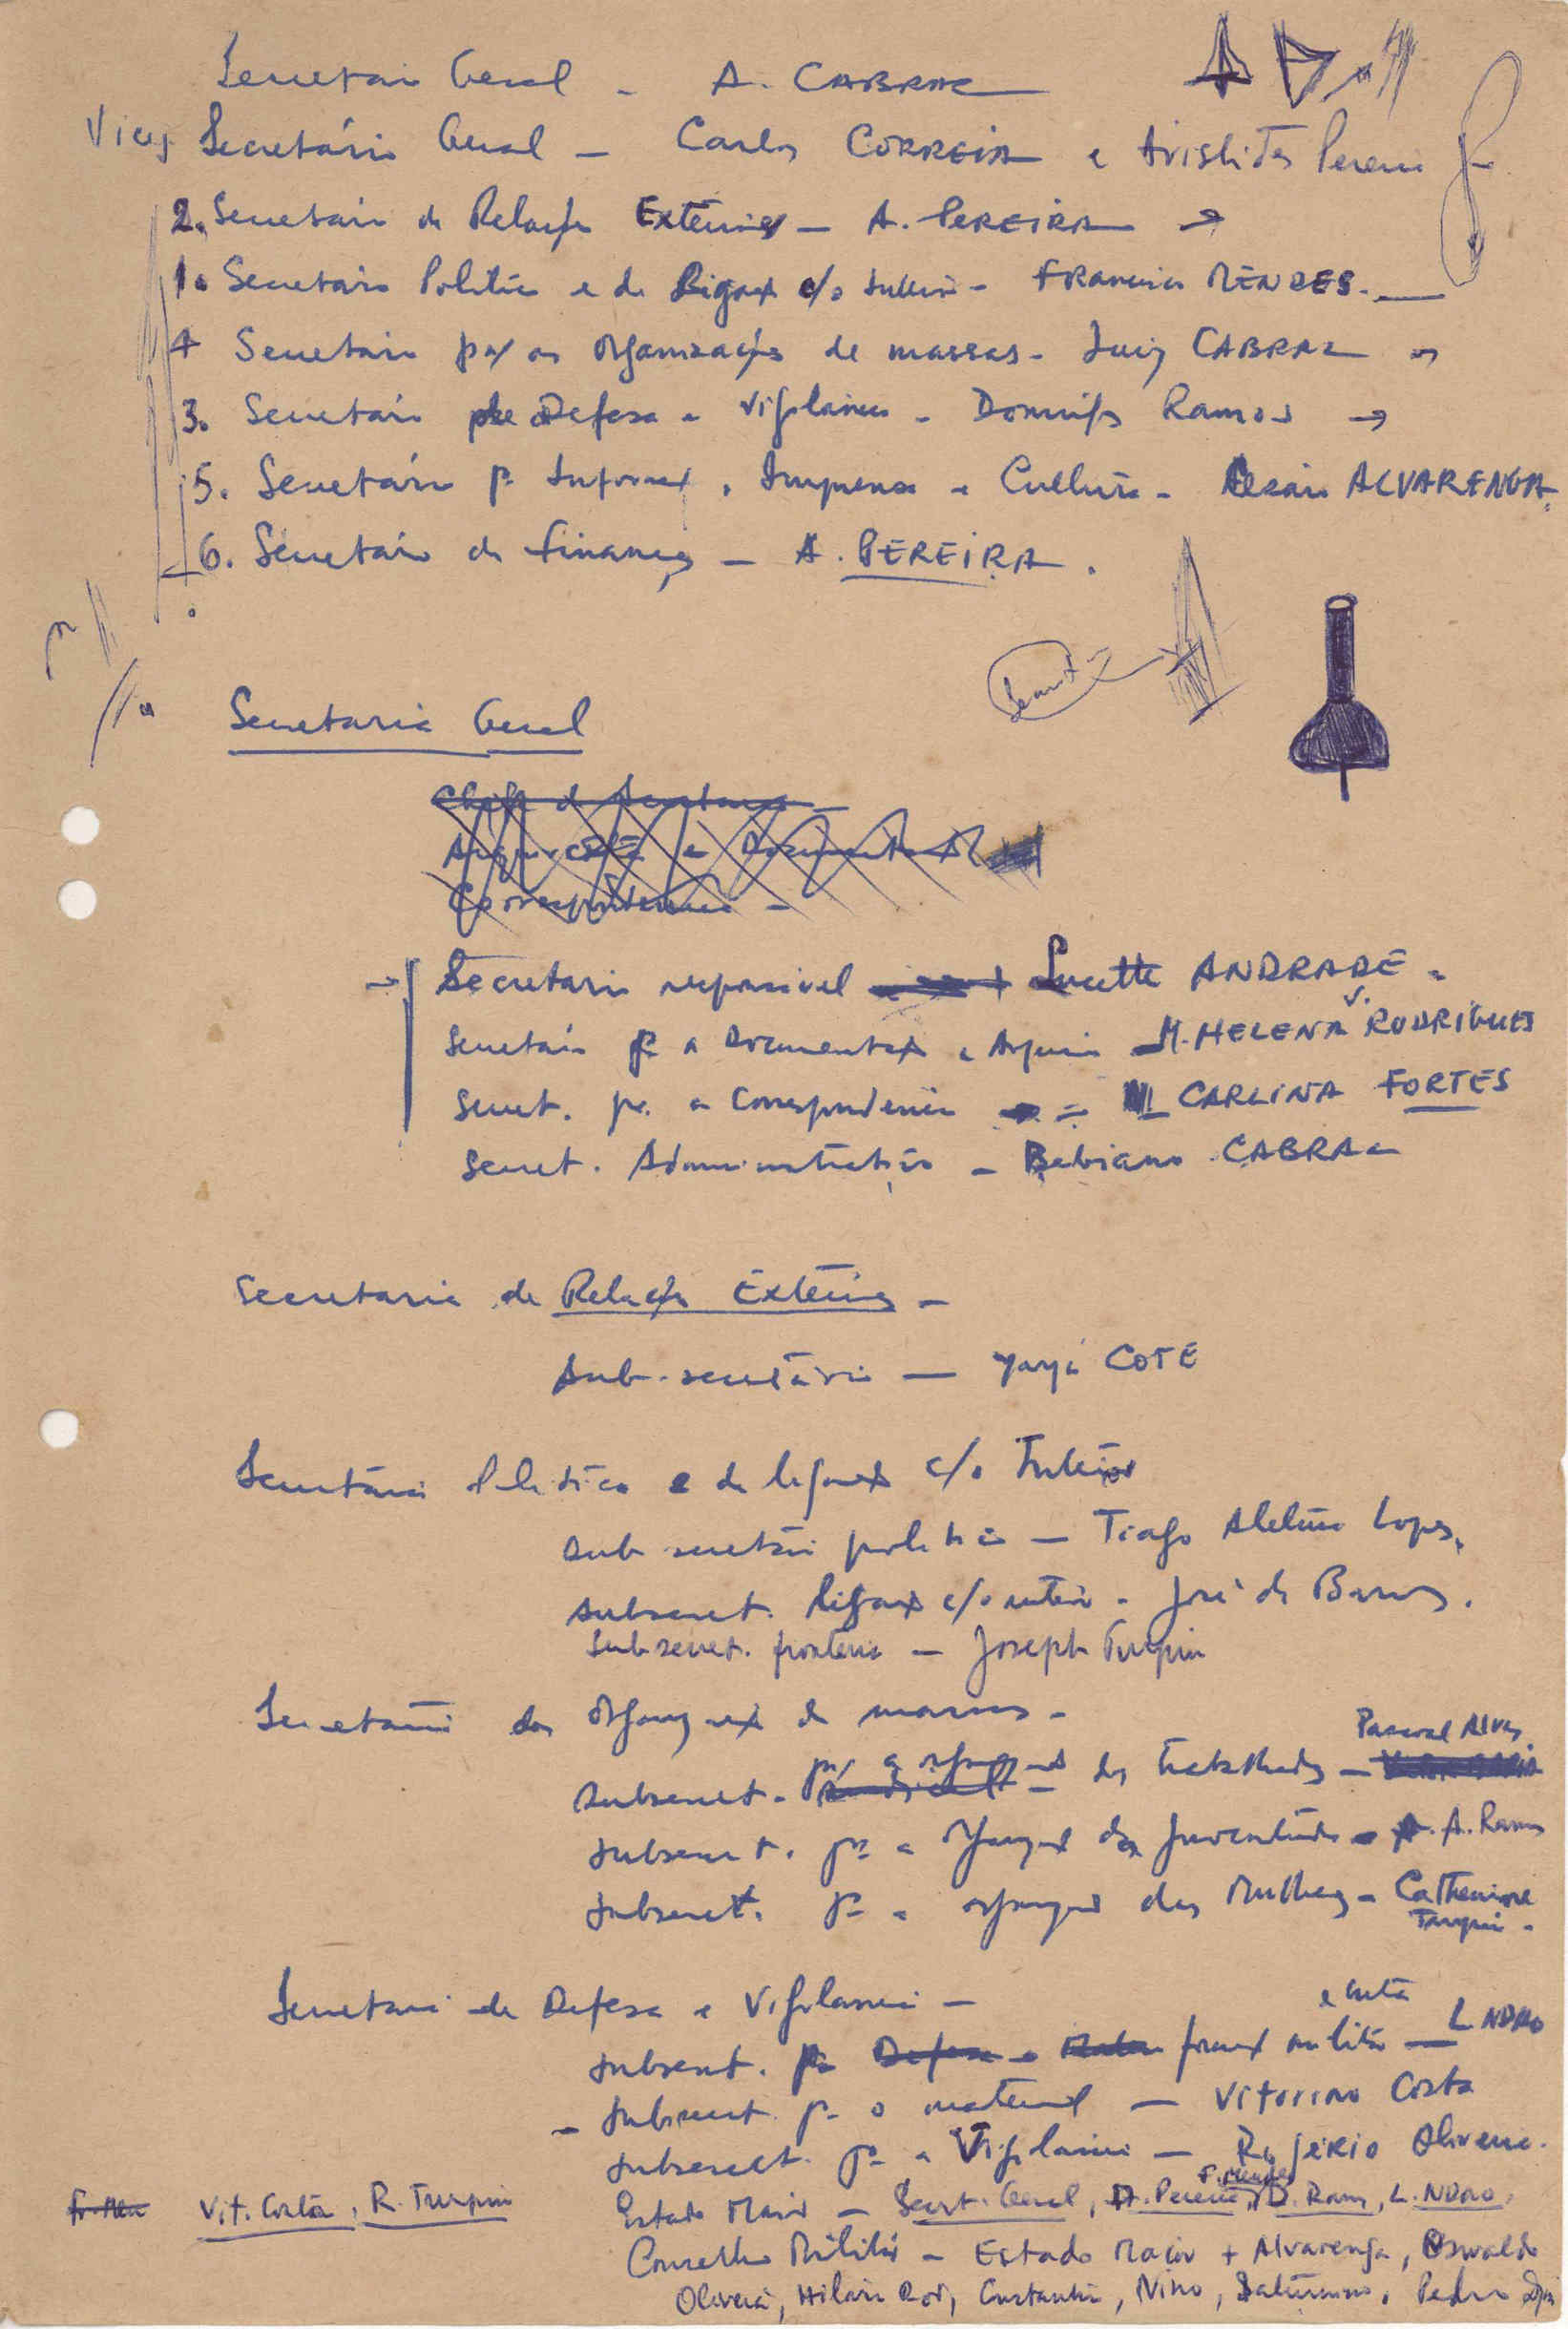 Secretário Geral - A. CABRAL
Vices Secretário Geral - Carlos CORREIA e Aristides Pereira
2. Secretário de Relações Exteriores - A. PEREIRA →
1. Secretário Político e de Ligação c/o Interior - FRANCISCO MENDES.
4 Secretário par as Organizações de massas - Luiz CABRAL
3. Secretário de Defesa e Vigilância - Domingos Ramos →
5. Secretário p. Informação, Imprensa e Cultura - ALVARENGA.
6. Secretário de Finanças - A. PEREIRA.
Secretaria Geral
Correspondência -
→ Secretário responsável Lucette ANDRADE -
Secretário pª a Documentação e Arquivo - M. HELENA V. RODRIGUES
Secret. pª a Correspondência - CARLINA FORTES
Secret. Administrativo - Bebiano CABRAL
Secretaria de Relações Exteriores -
Sub-secretário - Yayá COTE
Secretário Político e de ligação c/o Interior
Sub secretário político - Tiago Aleluia Lopes.
Subsecret. ligação c/o interior - José de Barros.
Subsecret. fronteira - Joseph Turpin
Secretário das Organização de massas -
Pascoal Alves
Subsecret. pª a organização dos trabalhadores -
Subsecret. pª a organização da Juventude - A. Ramos
Subsecret. pª a organização das Mulheres - Catherine
Turpin -
Secretário de Defesa e Vigilância -
Subsecret. pª Defesa e formação militar - L NDAO
- Subsecret. pª o material - Vitorino Costa
Subsecret. pª a Vigilância - Rogério Oliveira.
F. Mendes
Vit. Costa, R. Turpin
Estado Maior - Secret. Geral, A. Pereira, D. Ramos, L. NDAO,
Conselho Militar - Estado Maior + Alvarenga, Oswaldo
Oliveira, Hilário Rod, Constantino, Nino, Saturnino, Pedro